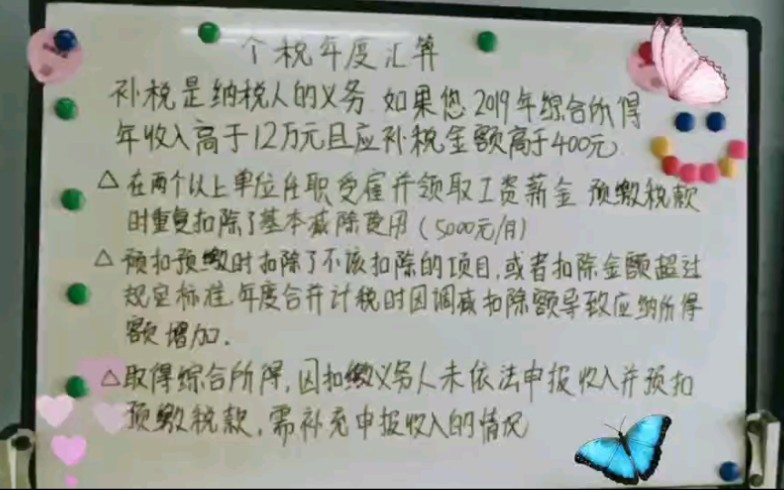 个税年度汇算
补税是纳税人的义务 如果您2019年综合所得
年收入高于12万元且应补税金额高于400元
△在两个以上单位任职受雇并领取工资薪金 预缴税款
时重复扣除了基本减除费用(5000元/月)
△预扣预缴时扣除了不该扣除的项目,或者扣除金额超过
规定标准,年度合并计税时因调减扣除额导致应纳所得
额增加.
△取得综合所得,因扣缴义务人未依法申报收入并预扣
预缴税款,需补充申报收入的情况